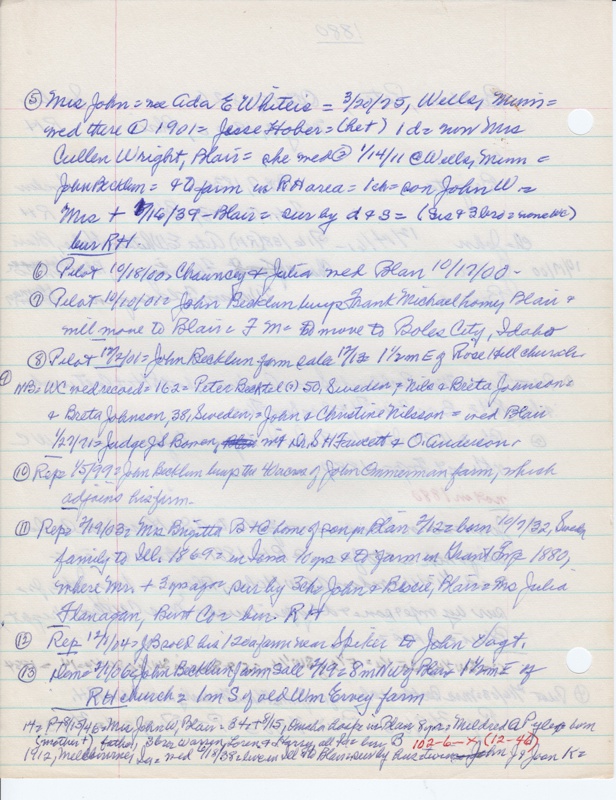 ⑤ Mrs John = nee Ada E Whiters = 3/20/75, Wells, Minn =
wed there ① 1901 = Jesse Hober = (het) 1 d = now Mrs
Cullen Wright, Blair = she wed ② 1/14/11 @ Wells, Minn =
John Becklun = & to farm in RH area = 1 ch = son John W =
Mrs + 7/16/39 - Blair = sur by d & S = (3 sis & 3 bros = none WC)
bur RH
⑥ Pilot 10/18/00 = Chauncey & Julia wed Blair 10/17/00 -
⑦ Pilot 10/10/01 = John Becklun buys Frank Michael home, Blair &
will move to Blair = F M = to move to Boles City, Idaho
⑧ Pilot 12/2/01 = John Becklun farm sale 12/12 1 1/2 m E of Rose Hill church
⑨ NB = WC wed record = 162 = Peter Becktel (s) 50, Sweden = Nils & Breta Jounson =
& Breta Johnson, 38, Sweden, = John & Christine Nilsson = wed Blair
1/27/71 = Judge J S Bowen, wit Dr. S H Fawcett & O. Anderson.
⑩ Rep = 1/5/99 = John Becklun buys the 40 acres of John Ommerman farm, which
adjoins his farm.
⑪ Rep = 2/19/03 = Mrs Brigitta B + @ home of son in Blair 2/12 = born 10/7/32, Sweden
family to Ill. 1869 = in Iowa & to farm in Grant Twp 1880,
where Mr. + 3 yrs ago = sur by 3 ch = John & Bessie, Blair = Mrs Julia
Flanagan, Burt Co = bur. R H
⑫ Rep 12/1/04 = J B sold his 120 a farm near Spiker to John Vogt.
⑬ Dem = 2/1/06 = John Becklun farm sale 2/19 = 8 m NW of Blair 1 1/2 m E of
RH church = 1 m S of old Wm Ervey farm
14 = P + 9/13/46 = Mrs John W, Blair = 34 + 9/15, Omaha hosp = in Blair 8 yrs = Mildred A Pyle = born
(mother +) father, 3 bro Warren, Loren & Harry, all Ia = bur B 102-6-X (12-46)
1912, Melbourne, Ia = wed 12/10/38 = live in Ill & to Blair = sur by hus & twins John J & Joan K =